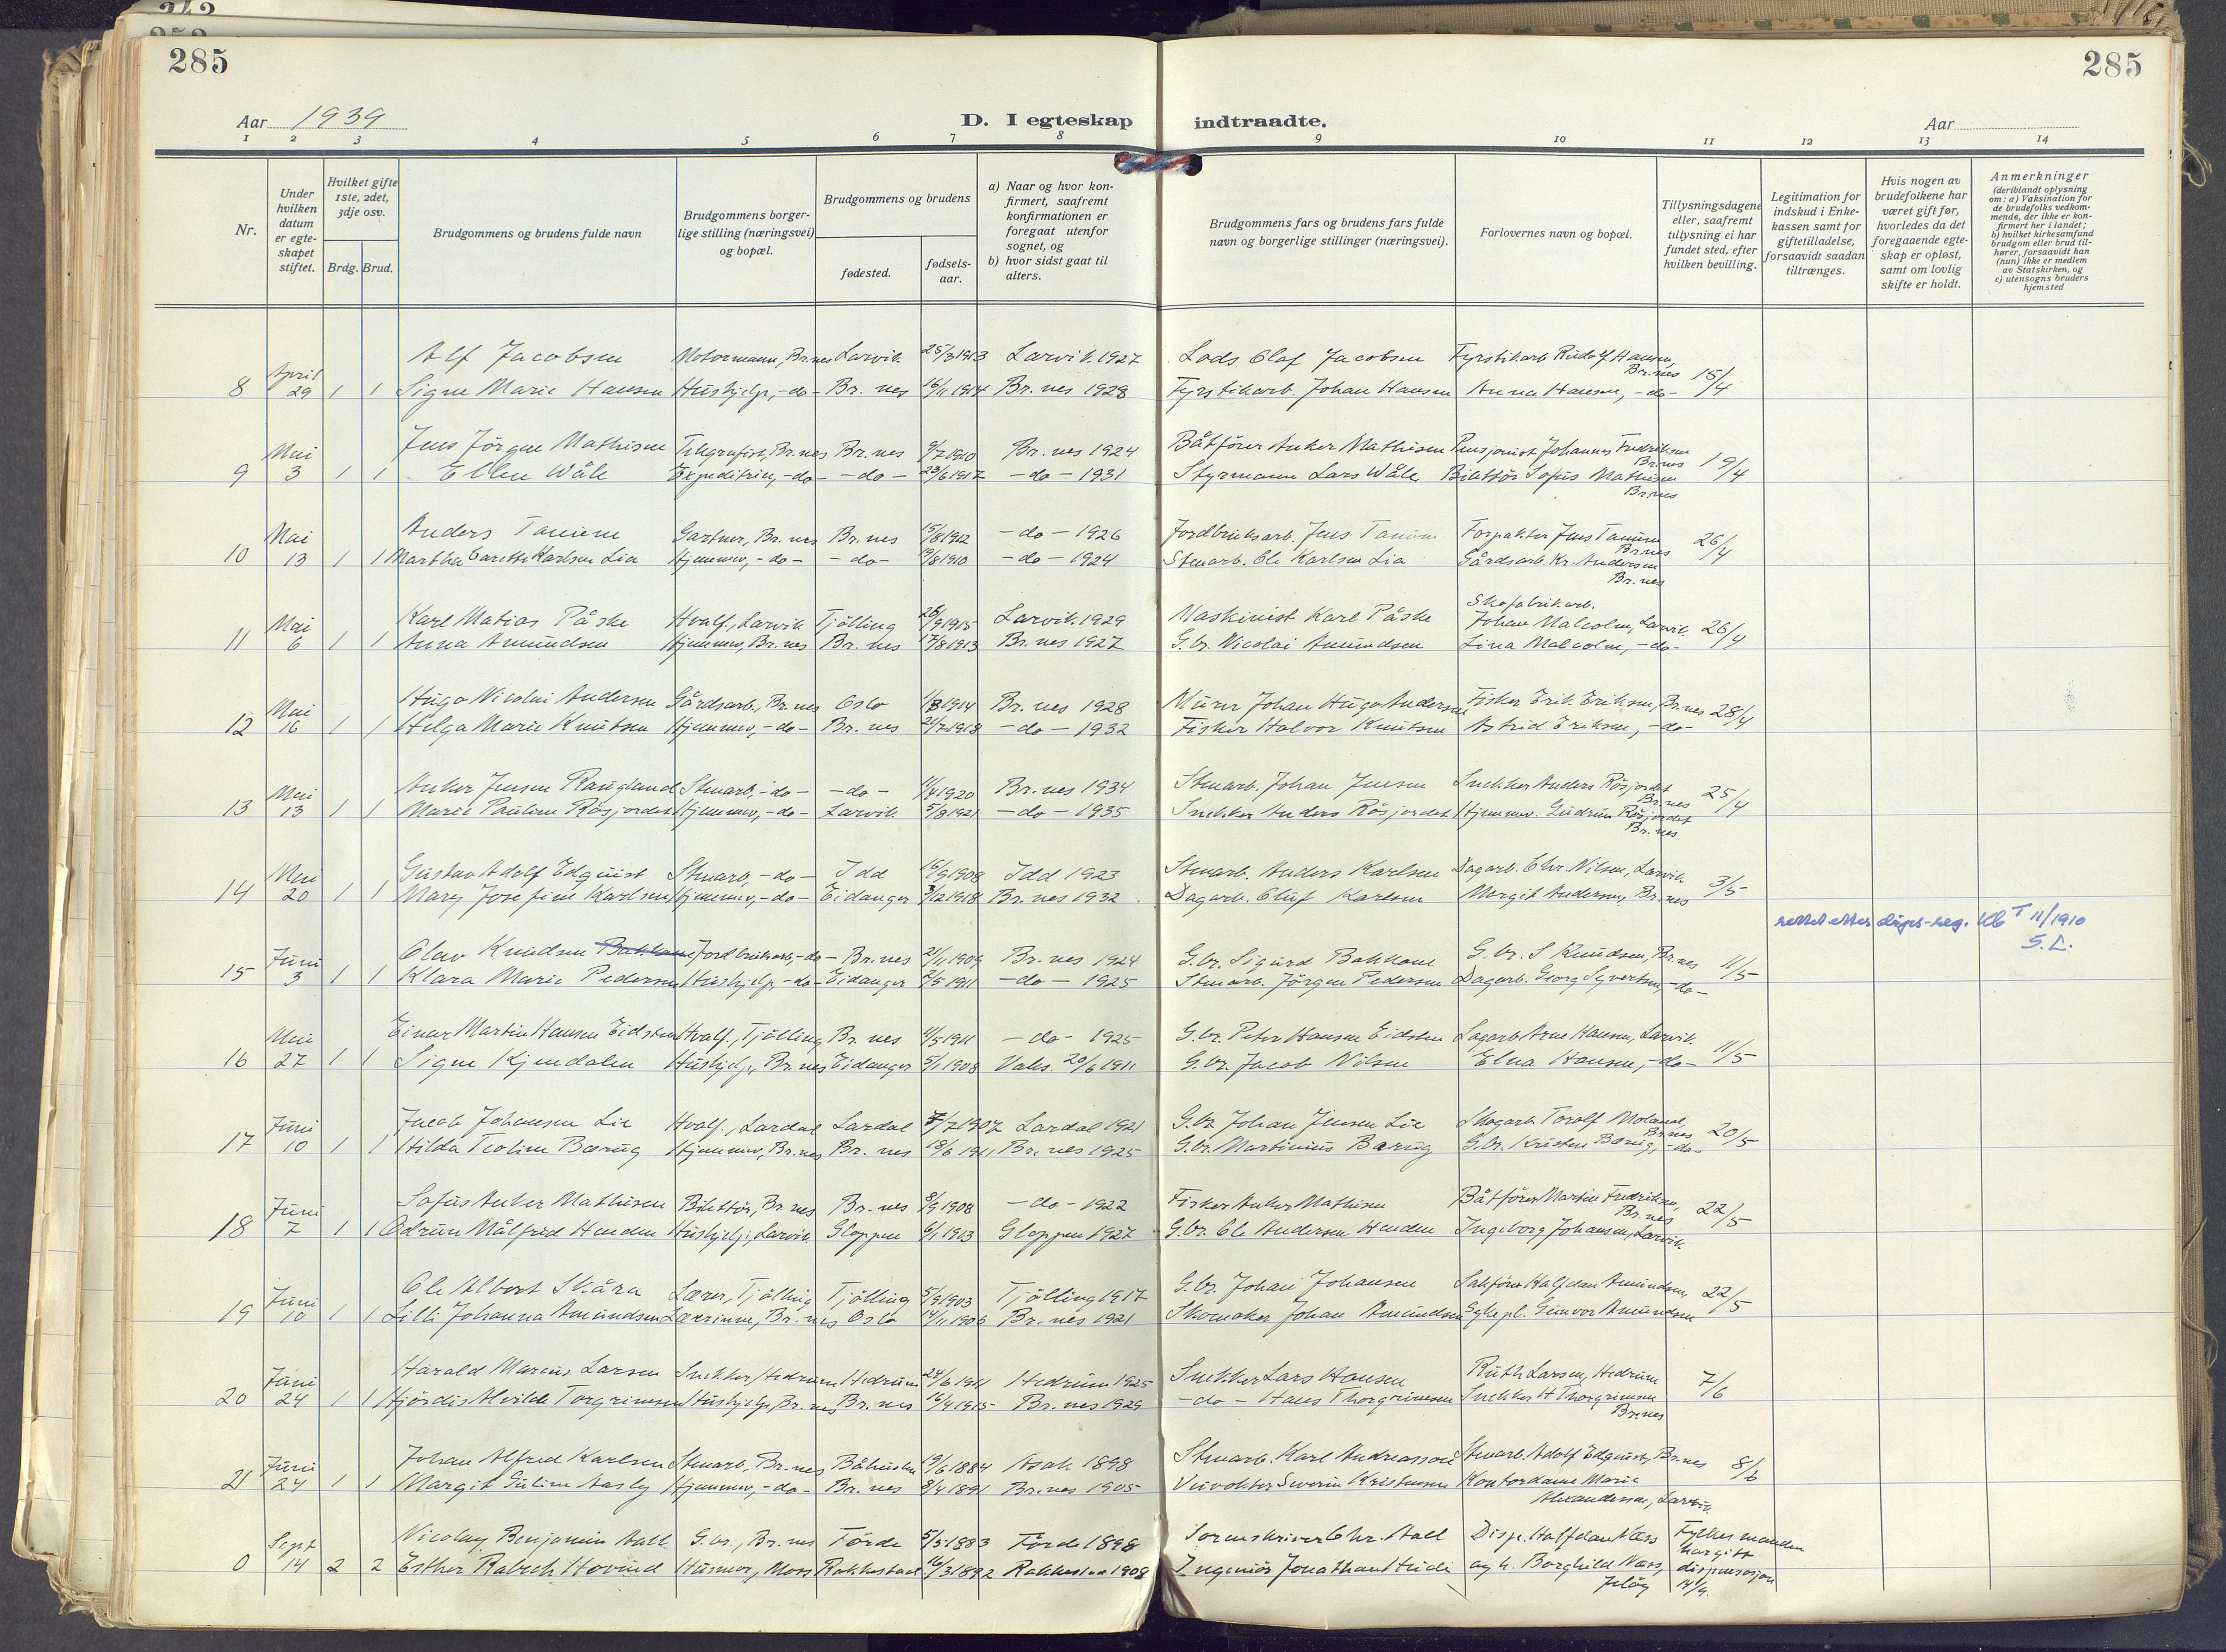 285
285
Aar 1939
D. I egteskap indtraadte.
Aar
1 2 3 4 5 6 7 8 9 10 11 12 13 14
Nr.
Under hvilken datum er egteskapet stiftet.
Hvilket gifte 1ste, 2det, 3dje osv.
Brdg. Brud.
Brudgommens og brudens fulde navn
Brudgommens borgerlige stilling (næringsvei) og bopæl.
Brudgommens og brudens
fødested.
fødselsaar.
a) Naar og hvor konfirmert, saafremt konfirmationen er foregaat utenfor sognet, og
b) hvor sidst gaat til alters.
Brudgommens fars og brudens fars fulde navn og borgerlige stillinger (næringsvei).
Forlovernes navn og bopæl.
Tillysningsdagene eller, saafremt tillysning ei har fundet sted, efter hvilken bevilling.
Legitimation for indskud i Enkekassen samt for giftetilladelse, forsaavidt saadan tiltrænges.
Hvis nogen av brudefolkene har været gift før, hvorledes da det foregaaende egteskap er opløst, samt om lovlig skifte er holdt.
Anmerkninger
(deriblandt oplysning om: a) Vaksination for de brudefolks vedkommende, der ikke er konfirmert her i landet; b) hvilket kirkesamfund brudgom eller brud tilhører, forsaavidt han (hun) ikke er medlem av Statskirken, og c) utensogns bruders hjemsted
April Alf Jacobsen Motormann, Br.nes Larvik 25/3 1913 Larvik 1927 Lods Olaf Jacobsen Fyrstikarb. Rudolf Hansen, Br.nes 15/4
8 29 1 1 Signe Marie Hansen Hushjelp, -do- Br. nes 16/11 1914 Br. nes 1928 Fyrstikarb. Johan Hansen Anna Hansen, -do-
Mai Jens Jörgen Mathisen Telegrafist, Br.nes Br. nes 9/7 1910 Br. nes 1924 Båtförer Anker Mathisen Pensjonist Johannes Fredriksen Br.nes 19/4
9 3 1 1 Ellen Wåle Expeditrise, -do- -do- 23/6 1917 -do- 1931 Styrmann Lars Wåle Billettör Sofus Mathisen Br.nes
Mai Anders Tanum Gartner, Br. nes Br. nes 15/8 1912 -do- 1926 Jordbruksarb. Jens Tanum Forpakter Jens Tanum Br.nes 26/4
10 13 1 1 Martha Karlsen Lia Hjemmev, -do- -do- 19/8 1910 -do- 1924 Stenarb. Ole Karlsen Lia Gårdsarb. Kr. Andersen Br. nes
Mai Karl Matias Påske Hvalf., Larvik Tjölling 26/9 1915 Larvik 1929 Maskinist Karl Påske Skofabrikarb. Johan Malcolm, Larvik 26/4
11 6 1 1 Anna Amundsen Hjemmev, Br. nes Br. nes 17/8 1913 Br. nes 1927 G.br. Nicolai Amundsen Lina Malcolm, -do-
Mai Hugo Nicolai Andersen Gårdsarb., Br. nes Oslo 1/8 1914 Br. nes 1928 Murer Johan Hugo Andersen Fisker Erik Eriksen, Br.nes 28/4
12 16 1 1 Helga Marie Knutsen Hjemmev, -do- Br. nes 21/7 1918 -do- 1932 Fisker Halvor Knutsen Astrid Eriksen, -do-
Mai Anker Jensen Raugland Stenarb, -do- -do- 11/4 1920 Br. nes 1934 Stenarb. Johan Jensen Snekker Anders Rösjordet Br.nes 25/4
13 13 1 1 Marie Pauline Rösjordet Hjemmev, -do- Larvik 5/8 1921 -do- 1935 Snekker Anders Rösjordet Hjemmev. Gudrun Rösjordet Br. nes
Mai Gustav Adolf Edquist Stenarb, -do- Idd 16/9 1908 Idd 1923 Stenarb. Anders Karlsen Dagarb. Chr. Nilsen, Larvik 3/5
14 20 1 1 Mary Josefine Karlsen Hjemmev, -do- Eidanger 3/12 1918 Br. nes 1932 Dagarb. Oluf Karlsen Margit Andersen, Br. nes
rettet etter dåps-reg. Kb I 11/1910
S.L.
Juni Olav Knudsen Bakkane Jordbruksarb, -do- Br. nes 21/11 1909 Br. nes 1924 G.br. Sigurd Bakkane G.br. S Knudsen, Br.nes 11/5
15 3 1 1 Klara Marie Pedersen Hushjelp, -do- Eidanger 2/5 1911 -do- 1925 Stenarb. Jörgen Pedersen Dagarb. Georg Syvertsen, -do-
Mai Einar Martin Hansen Eidsten Hvalf., Tjölling Br. nes 4/5 1911 -do- 1925 G.br. Peter Hansen Eidsten Lagarb. Arne Hansen, Larvik 11/5
16 27 1 1 Signe Kjendalen Hushjelp, Br. nes Eidanger 5/1 1908 Vaks. 20/6 1911 G.br. Jacob Nilsen Elna Hansen, -do-
Juni Jacob Johansen Lie Hvalf., Lardal Lardal 7/7 1907 Lardal 1921 G.br. Johan Jensen Lie Skogarb. Toralf Moland, Br.nes 20/5
17 10 1 1 Hilda Teoline Bærug Hjemmev, Br.nes Br. nes 18/6 1911 Br. nes 1925 G.br. Martinius Bærug G.br. Kristen Bærug, -do-
Juni Sofus Anker Mathisen Billettör, Br. nes Br. nes 8/9 1908 -do- 1922 Fisker Anker Mathisen Båtförer Martin Fredriksen, Br. nes 22/5
18 7 1 1 Odrun Målfrid Henden Hushjelp, Larvik Gloppen 6/1 1913 Gloppen 1927 G.br. Ole Andersen Henden Ingeborg Johansen, Larvik
Juni Ole Albert Skåra Lærer, Tjölling Tjölling 5/9 1903 Tjölling 1917 G.br. Johan Johansen Sakförer Halfdan Amundsen, 22/5
19 10 1 1 Lilli Johanna Amundsen Lærerinne, Br. nes Oslo 14/11 1906 Br. nes 1921 Skomaker Johan Amundsen Sykepl. Gunvor Amundsen
Juni Harald Marcus Larsen Snekker, Hedrum Hedrum 24/6 1911 Hedrum 1925 Snekker Lars Hansen Ruth Larsen, Hedrum 7/6
20 24 1 1 Hjördis Alvilde Torgrimsen Hushjelp, Br. nes Br. nes 16/4 1915 Br. nes 1929 -do- Hans Thorgrimsen Snekker H Thorgrimsen Br.nes
Juni Johan Alfred Karlsen Stenarb, Br. nes Båhuslen 19/6 1884 Asak 1898 Stenarb. Karl Andreassen Stenarb. Adolf Edquist, Br.nes 8/6
21 24 1 1 Margit Aasly Hjemmev, -do- Br. nes 8/4 1891 Br. nes 1905 Severin Kristensen Kontordame Marie Alexandersen, Larvik
Sept Nicolay Benjamin Aall G.br., Br. nes Förde 5/5 1883 Förde 1898 Sorenskriver Chr. Aall Disp. Halfdan Næss Fylkesmanden har gitt
0 14 2 2 Esther Hovind Husmor, Moss Rakkestad 16/3 1892 Rakkestad 1908 Ingeniör Jonathan og h. Borghild Næss, Jelöy dispensasjon 14/9.